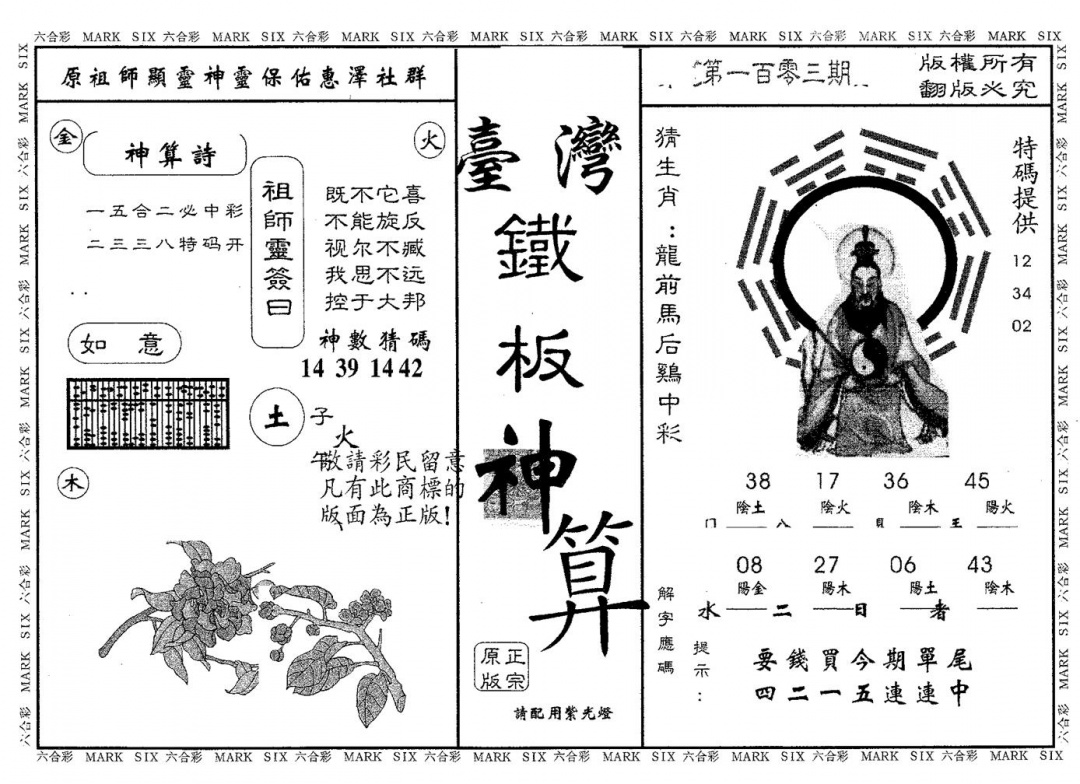 六合彩 MARK SIX 六合彩 MARK SIX 六合彩 MARK SIX 六合彩 MARK SIX 六合彩 MARK SIX 六合彩 MARK SIX 六合彩 MARK SIX 六合彩 MARK SIX
原祖師顯靈神靈保佑惠澤社群
金
火
神算詩
一五合二必中彩
二三三八特码开
祖師靈簽曰
既不它喜
不能旋反
视尔不臧
我思不远
控于大邦
神數猜碼
14 39 14 42
如 意
土
子
火
午
木
敬請彩民留意
凡有此商標的
版面為正版!
臺灣
鐵
板
神
算
正宗
原版
請配用紫光燈
第一百零三期
版權所有
翻版必究
猜生肖:龍前馬后鷄中彩
特碼提供
12
34
02
38 17 36 45
陰土 陰火 陰木 陽火
八 王
08 27 06 43
陽金 陽木 陽土 陰木
水 二 日 者
解字應碼
提示:
要錢買今期單尾
四二一五連連中
六合彩 MARK SIX 六合彩 MARK SIX 六合彩 MARK SIX 六合彩 MARK SIX 六合彩 MARK SIX 六合彩 MARK SIX 六合彩 MARK SIX 六合彩 MARK SIX